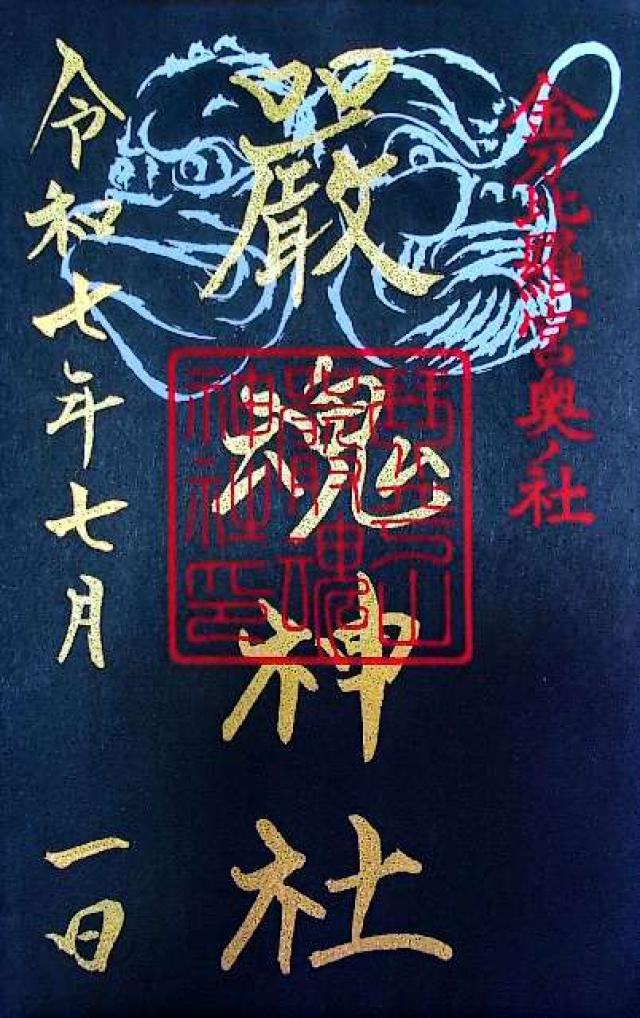 金刀比羅宮奥ノ社
嚴魂神社
令和七年七月
一日